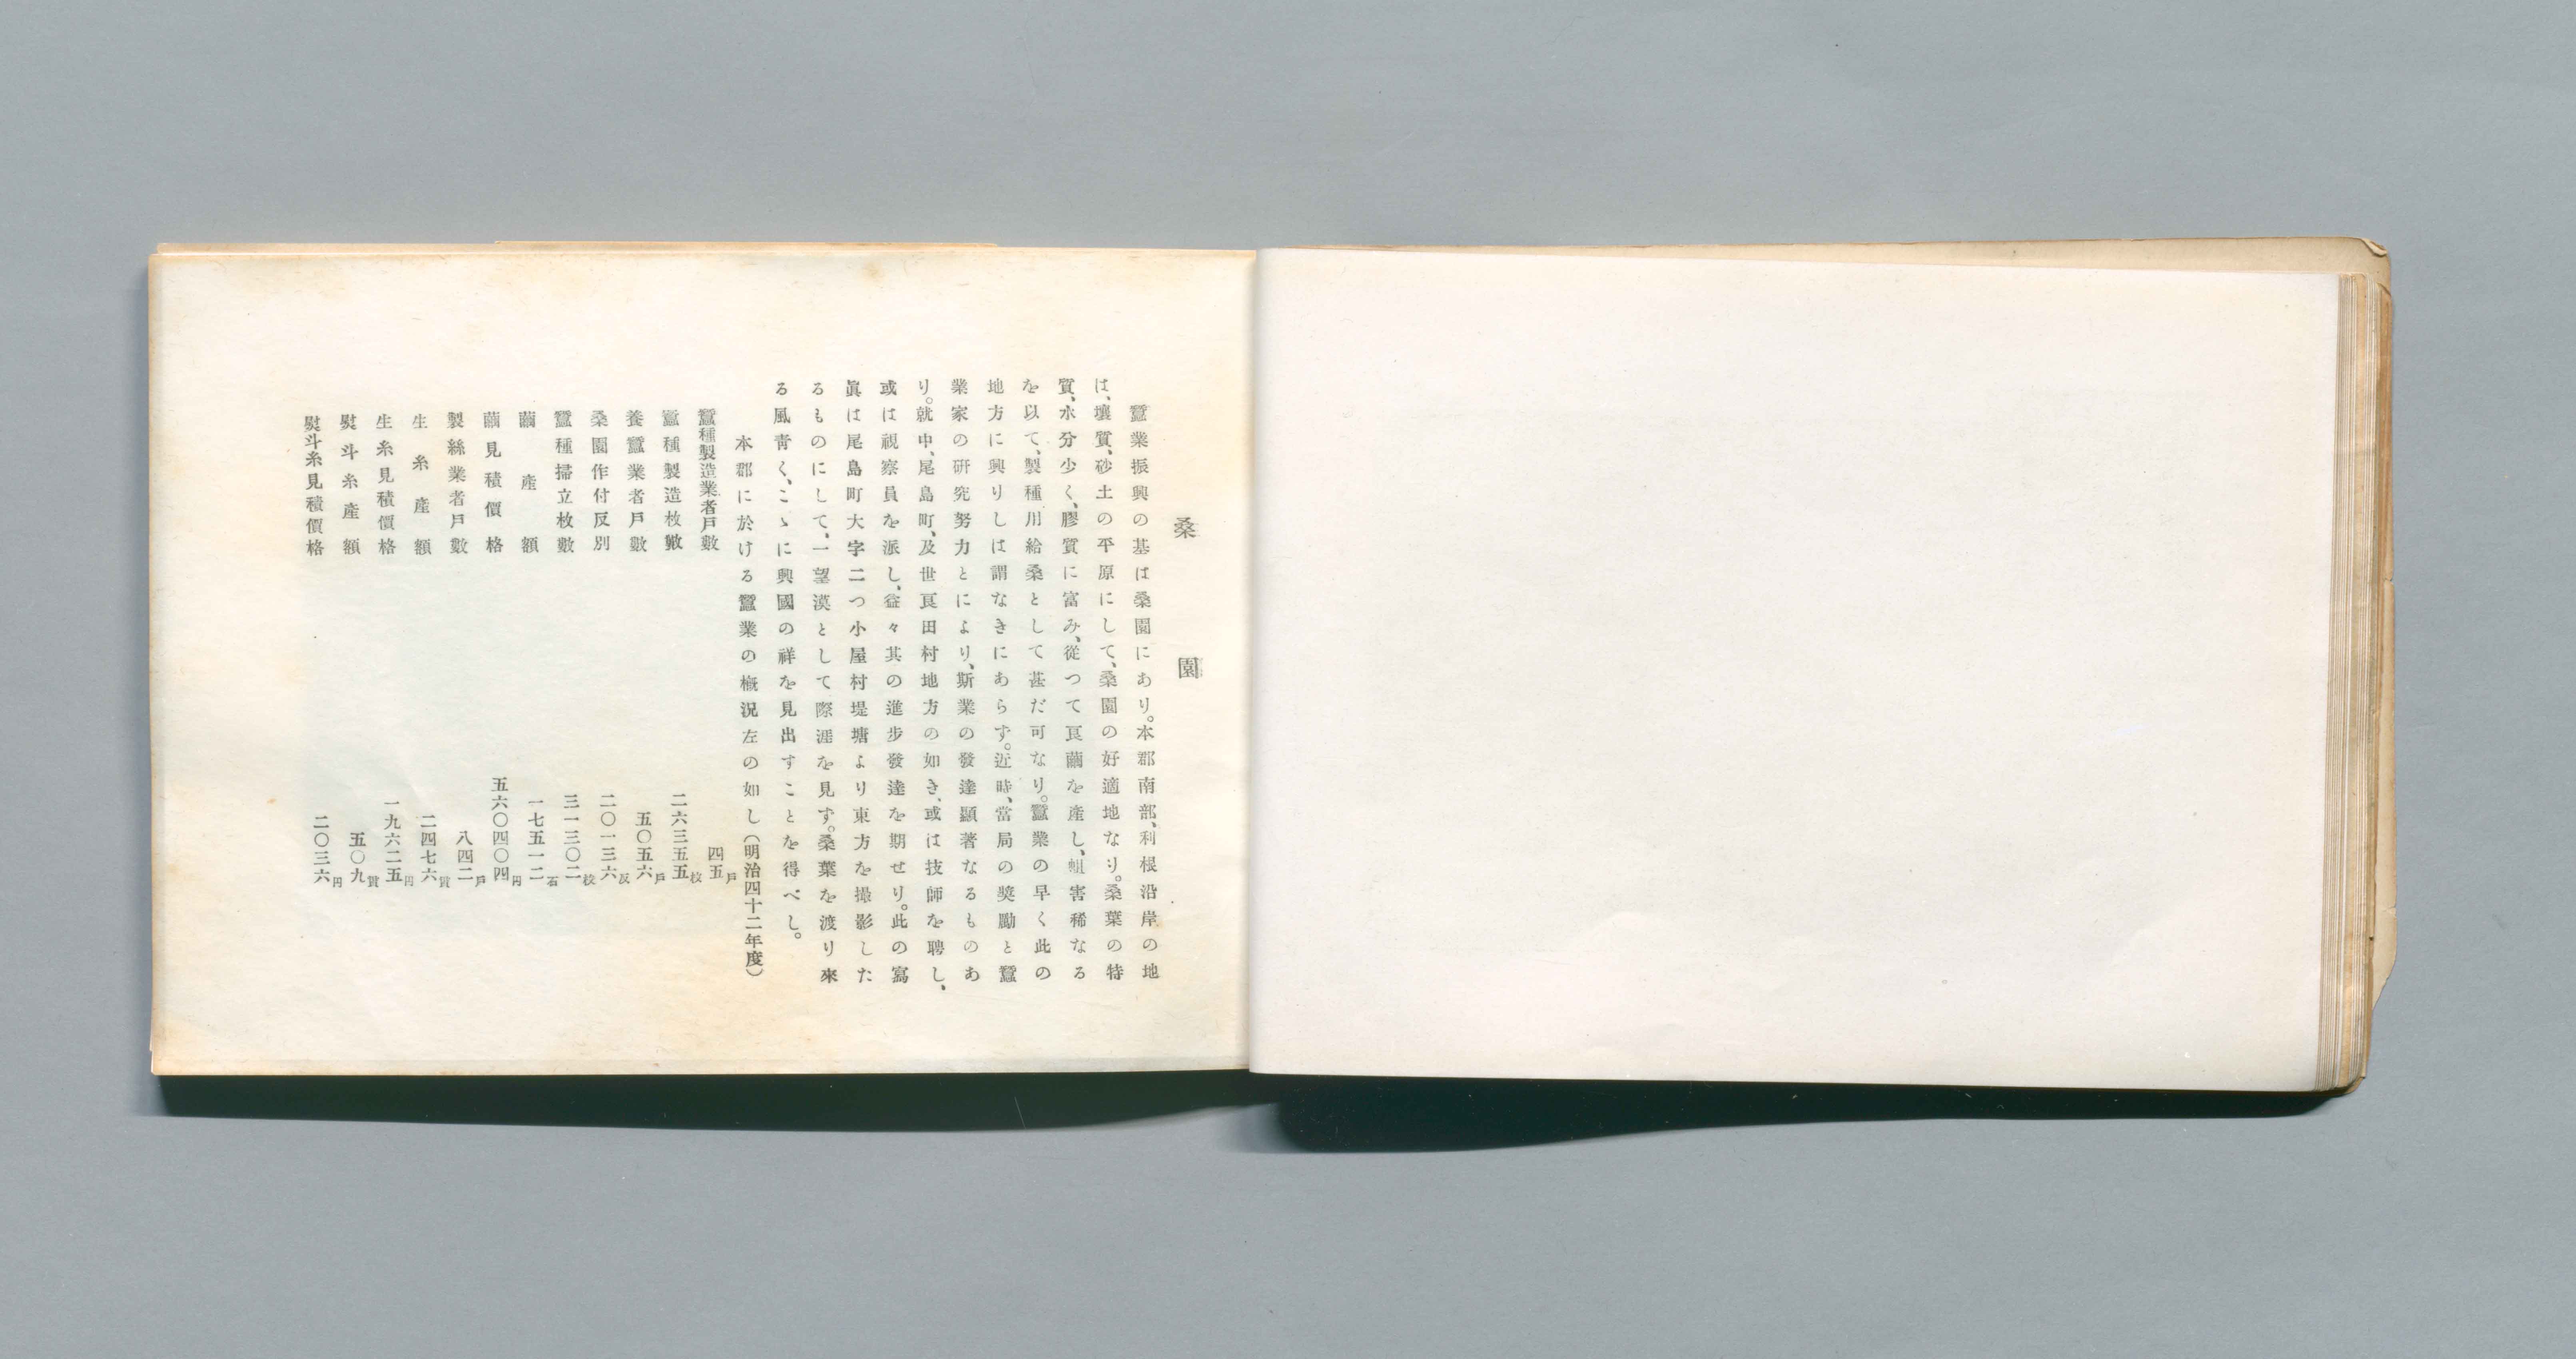 桑園
蠶業振興の基は桑園にあり。本郡南部、利根沿岸の地
は、壤質、砂土の平原にして、桑園の好適地なり。桑葉の特
質、水分少く、膠質に富み、從つて良繭を產し、蛆害稀なる
を以て、製種用給桑として甚だ可なり。蠶業の早く此の
地方に興りしは謂なきにあらず。近時、當局の奬勵と蠶
業家の硏究努力とにより、斯業の發達顯著なるものあ
り。就中、尾島町、及世良田村地方の如き、或は技師を聘し、
或は視察員を派し、益々其の進步發達を期せり。此の寫
眞は尾島町大字二つ小屋村堤塘より東方を撮影した
るものにして、一望漠として際涯を見ず。桑葉を渡り來
る風靑く、こゝに興國の祥を見出すことを得べし。
本郡に於ける蠶業の槪況左の如し（明治四十二年度）
蠶種製造業者戶數 四五戶
蠶種製造枚數 二六三五五枚
養蠶業者戶數 五〇五六戶
桑園作付反別 二〇一三六反
蠶種掃立枚數 三一三〇二枚
繭產額 一七五一二石
繭見積價格 五六〇四〇四円
製絲業者戶數 八四二戶
生糸產額 二四七六貫
生糸見積價格 一九六二五円
熨斗糸產額 五〇九貫
熨斗糸見積價格 二〇三六円